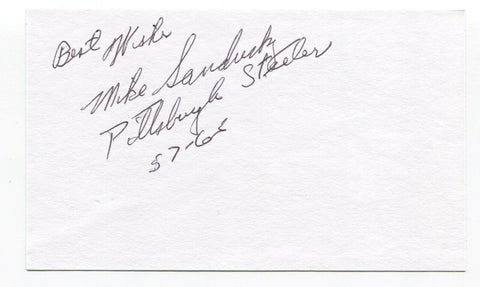 Best Wishes
Mike Sandusky
Pittsburgh Steeler
57-65